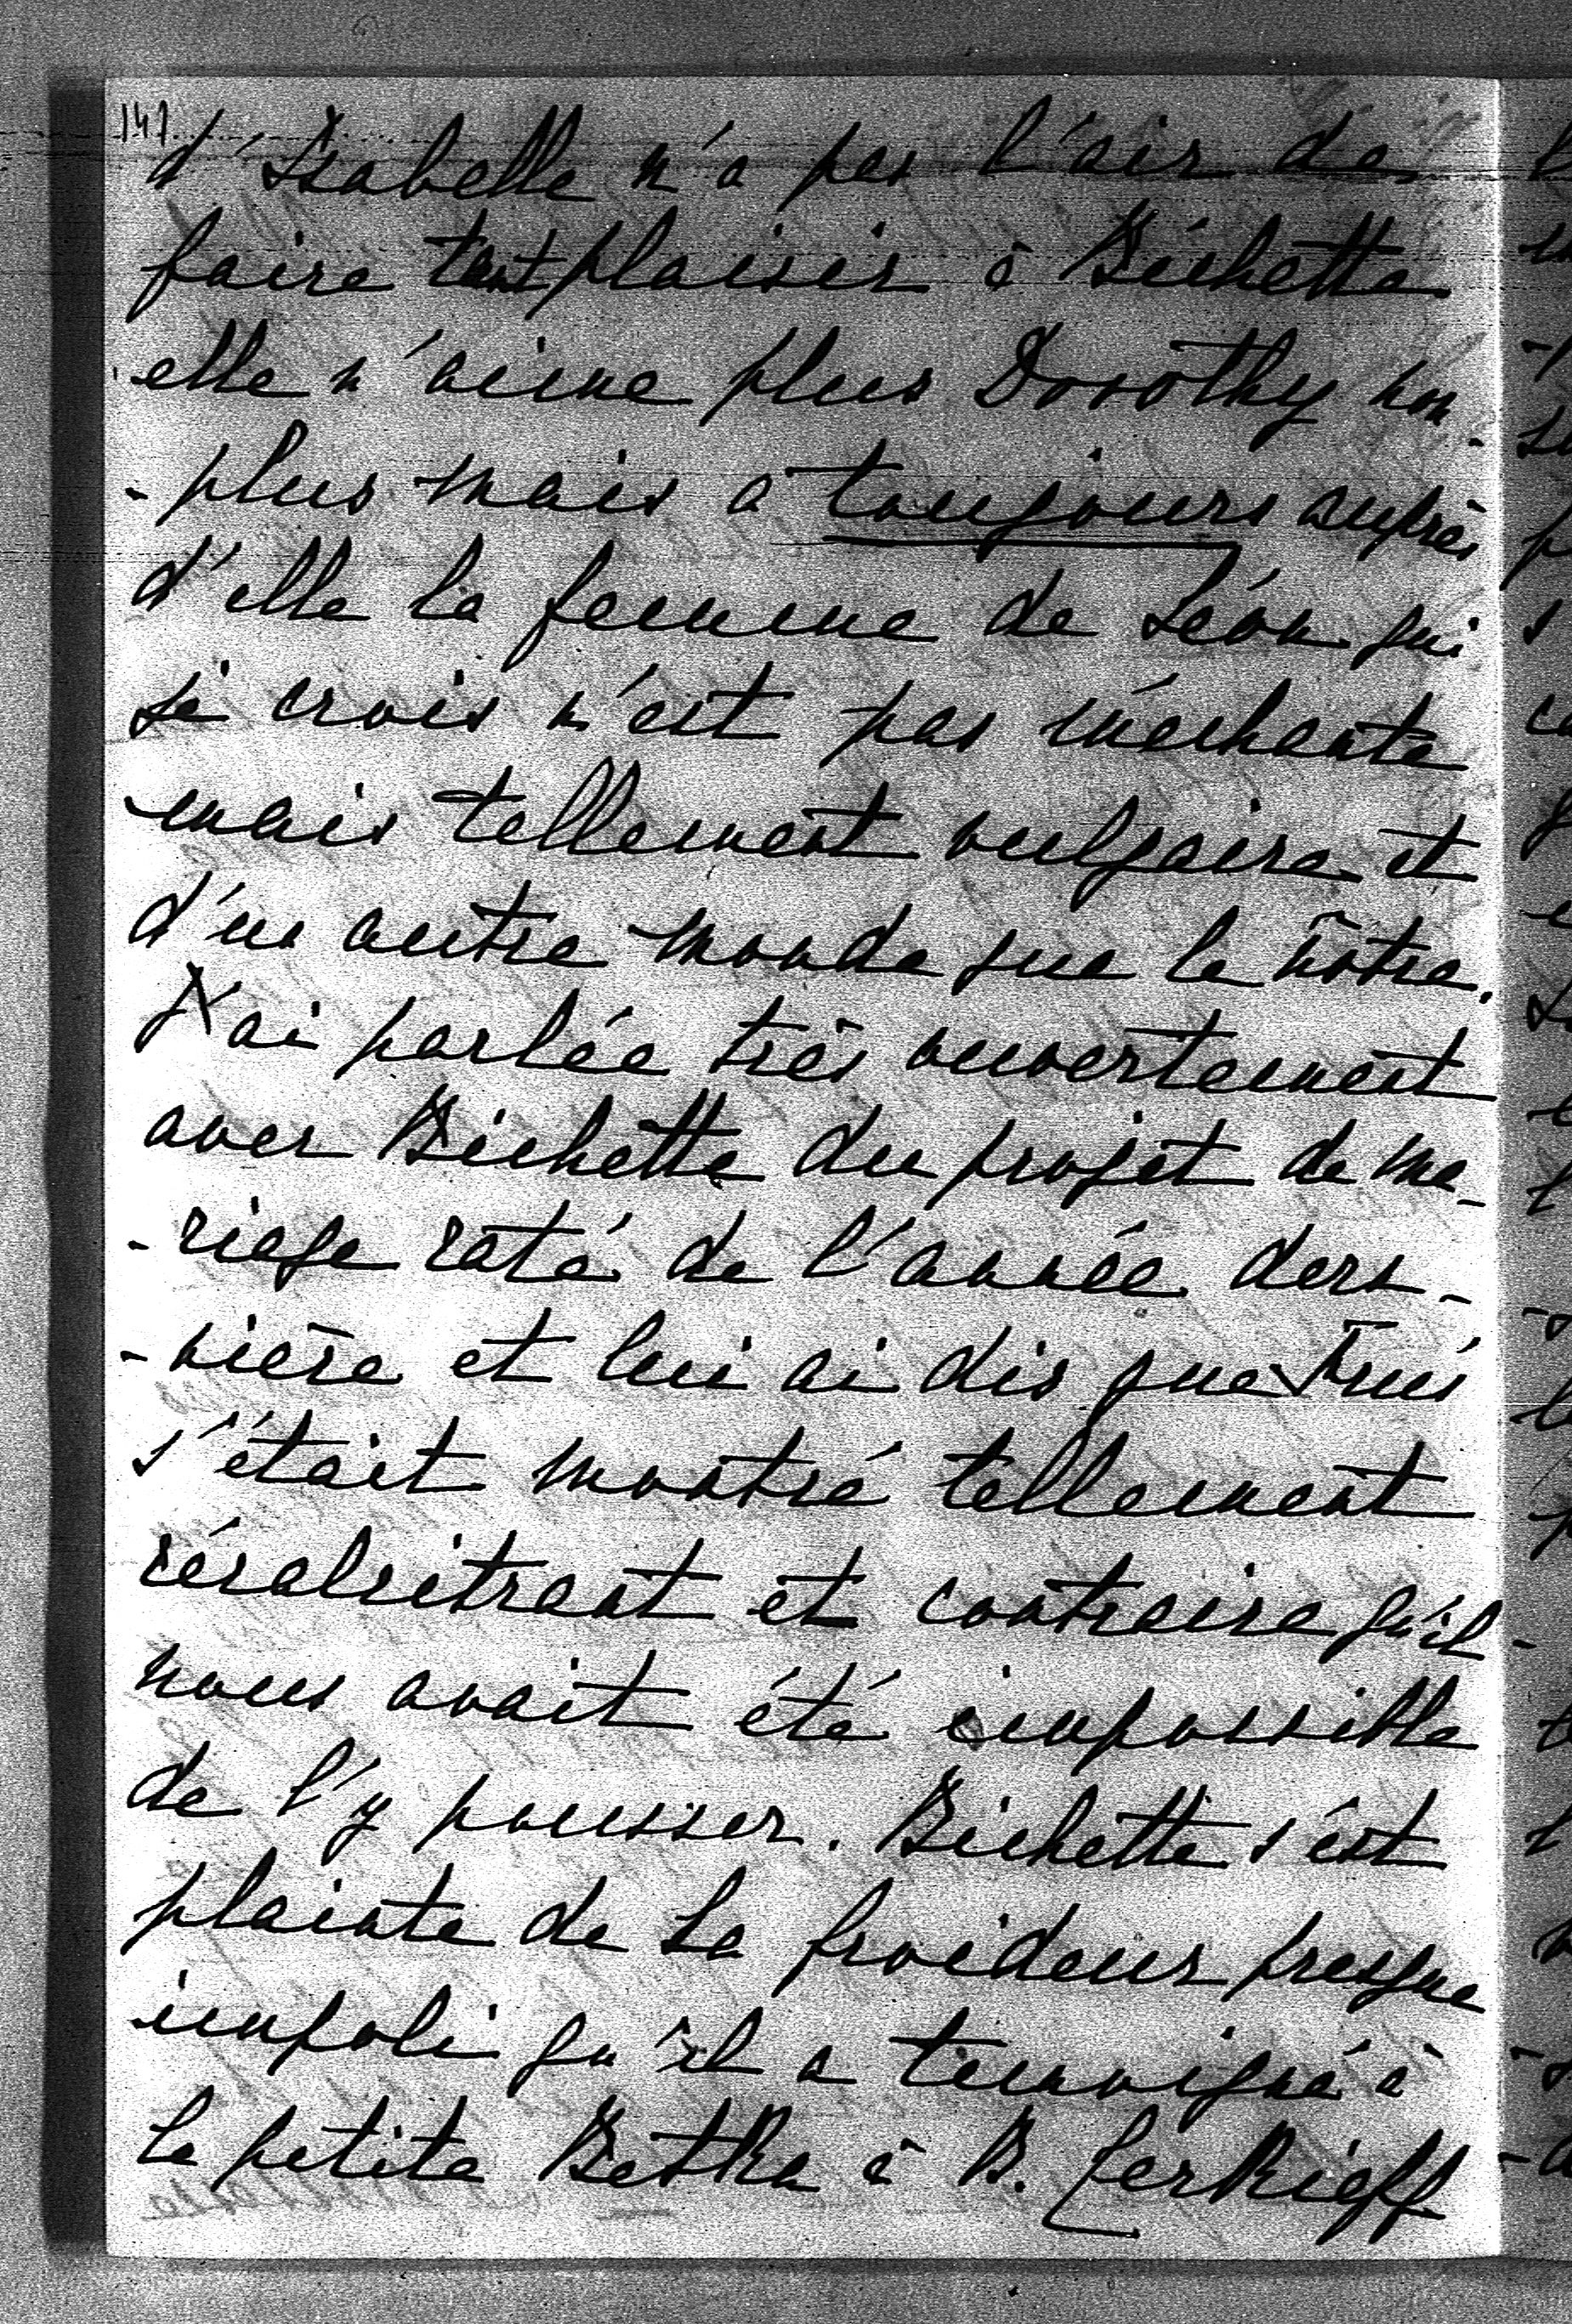 147
d'Isabelle n'a pas l'air de
faire tant plaisir à Bichette
elle n'aime plus Dorothy non
-plus mais a toujours auprès
d'elle la femme de Léon qui
je crois n'est pas méchante
mais tellement vulgaire et
d'un autre monde que le nôtre.
J'ai parlée très ouvertement
avec Bichette du projet de ma-
-riage raté de l'année der-
-nière et lui ai dis que
s'était montré tellement
récalsitrant et contraire qu'il
nous avait été impossible
de l'y pousser. Bichette s'est
plainte de la froideur presque
impoli qu'il a temoigné à
la petite Betka à B. Zerkieff